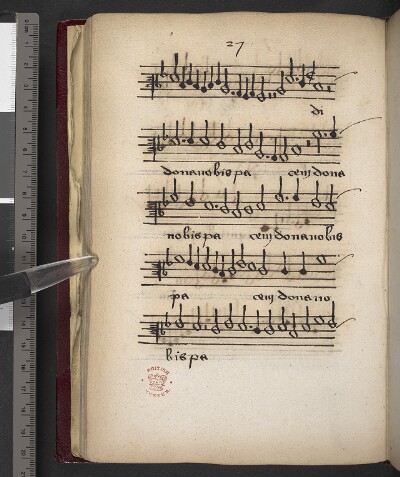 27
di
dona nobis pa cem dona
nobis pa cem dona nobis
pa cem dona no
bis pa
BRITISH
MUSEUM